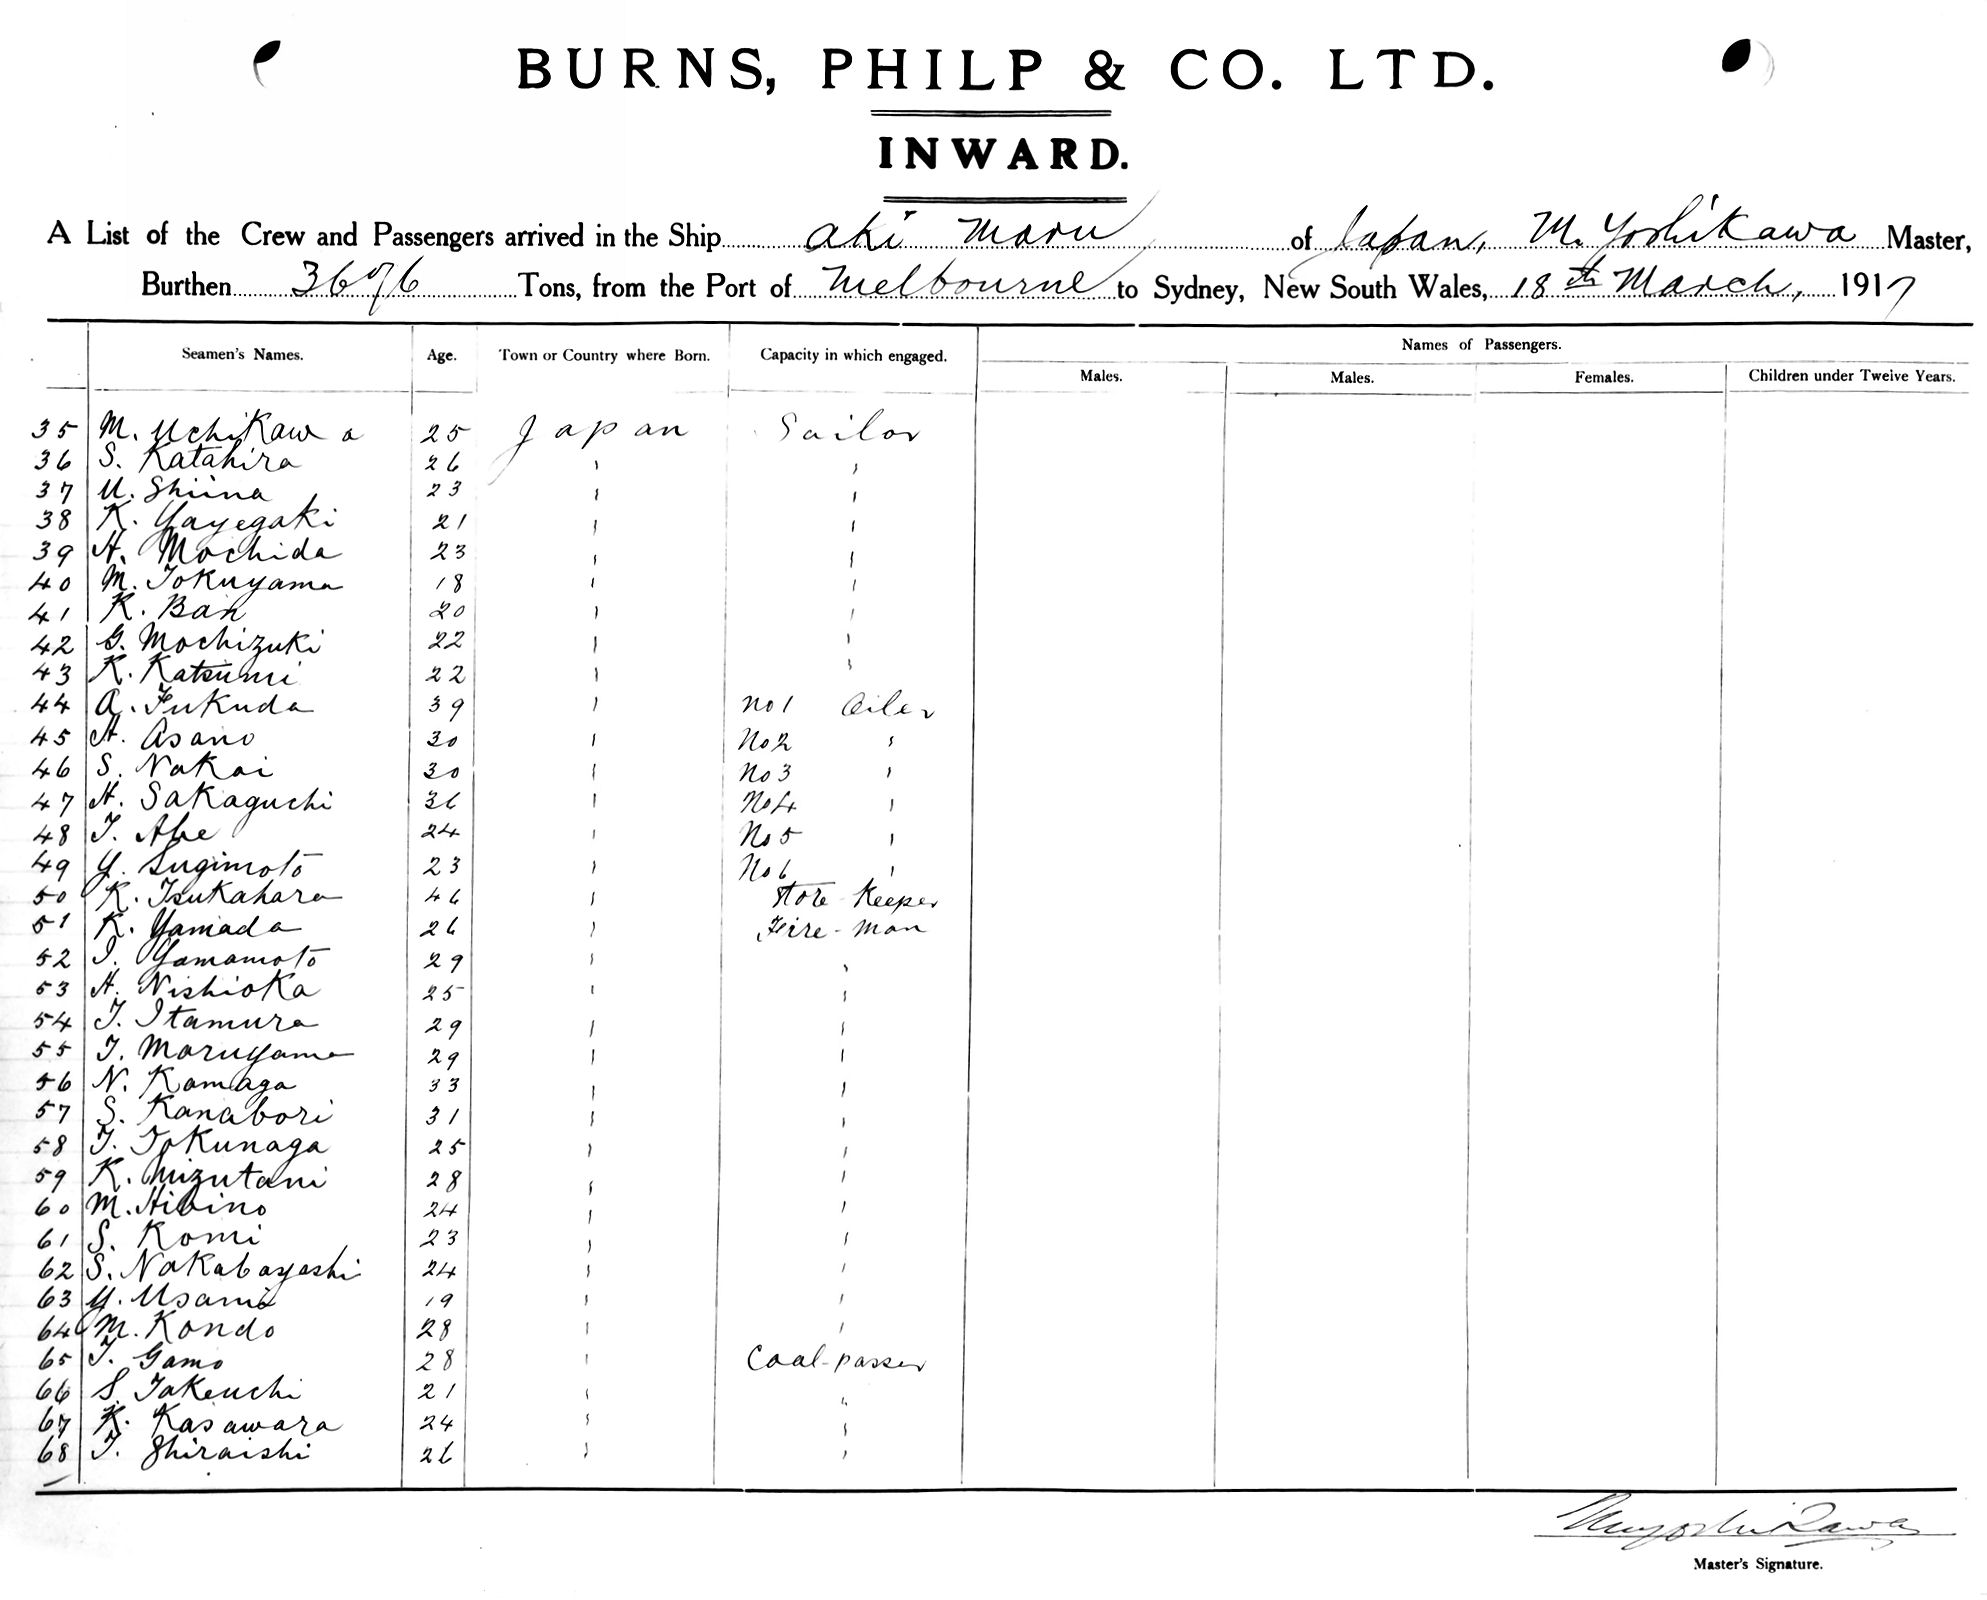 BURNS, PHILP & CO. LTD.
INWARD.
A List of the Crew and Passengers arrived in the Ship Aki Maru of Japan, M. Yoshikawa Master,
Burthen 3676 Tons, from the Port of Melbourne to Sydney, New South Wales, 18th March, 1917
Seamen's Names. Age. Town or Country where Born. Capacity in which engaged. Names of Passengers.
Males. Males. Females. Children under Twelve Years.
35 M. Uchikawa 25 Japan Sailor
36 S. Katahira 26 " "
37 U. Shiina 23 " "
38 K. Yayegaki 21 " "
39 H. Mochida 23 " "
40 M. Tokuyama 18 " "
41 K. Ban 20 " "
42 G. Mochizuki 22 " "
43 K. Katsumi 22 " "
44 A. Fukuda 39 " No 1 Oiler
45 H. Asano 30 " No 2 "
46 S. Nakai 30 " No 3 "
47 H. Sakaguchi 36 " No 4 "
48 T. Abe 24 " No 5 "
49 Y. Sugimoto 23 " No 6 "
50 K. Tsukahara 46 " Store Keeper
51 K. Yamada 26 " Fire-man
52 I. Yamamoto 29 " "
53 H. Nishioka 25 " "
54 T. Itamura 29 " "
55 T. Maruyama 29 " "
56 N. Kamaga 33 " "
57 S. Kanabori 31 " "
58 T. Tokunaga 25 " "
59 K. Mizutani 28 " "
60 M. Hibino 24 " "
61 S. Komi 23 " "
62 S. Nakabayashi 24 " "
63 Y. Usami 19 " "
64 M. Kondo 28 " "
65 T. Gamo 28 " Coal-passer
66 S. Takeuchi 21 " "
67 K. Kasawara 24 " "
68 T. Shiraishi 26 " "
M. Yoshikawa
Master's Signature.